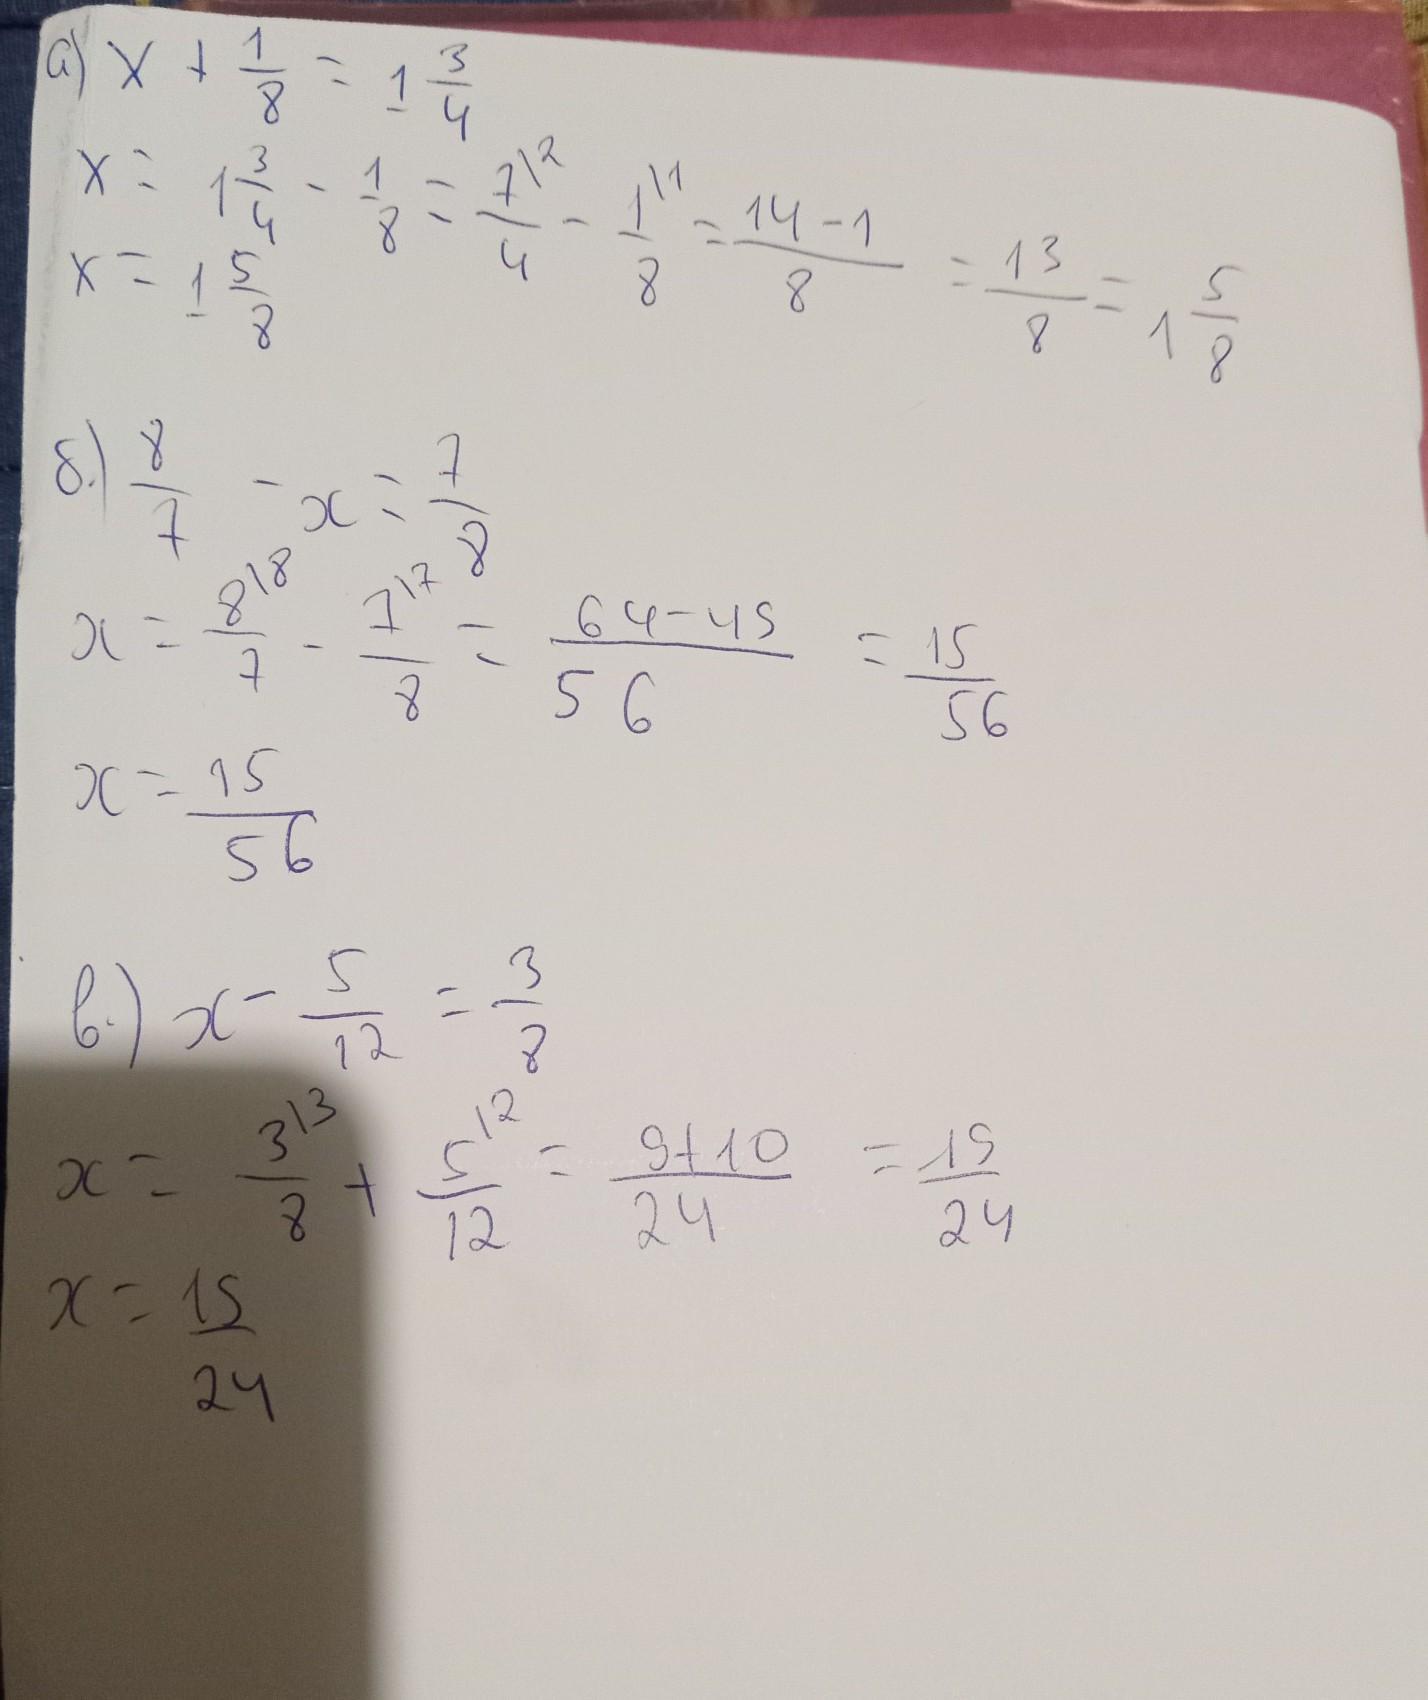 а) x + 1/8 = 1 3/4
x = 1 3/4 - 1/8 = 7\2/4 - 1\1/8 = 14-1/8 = 13/8 = 1 5/8
x = 1 5/8
б.) 8/7 - x = 7/8
x = 8\8/7 - 7\7/8 = 64-49/56 = 15/56
x = 15/56
в.) x - 5/12 = 3/8
x = 3\3/8 + 5\2/12 = 9+10/24 = 19/24
x = 19/24